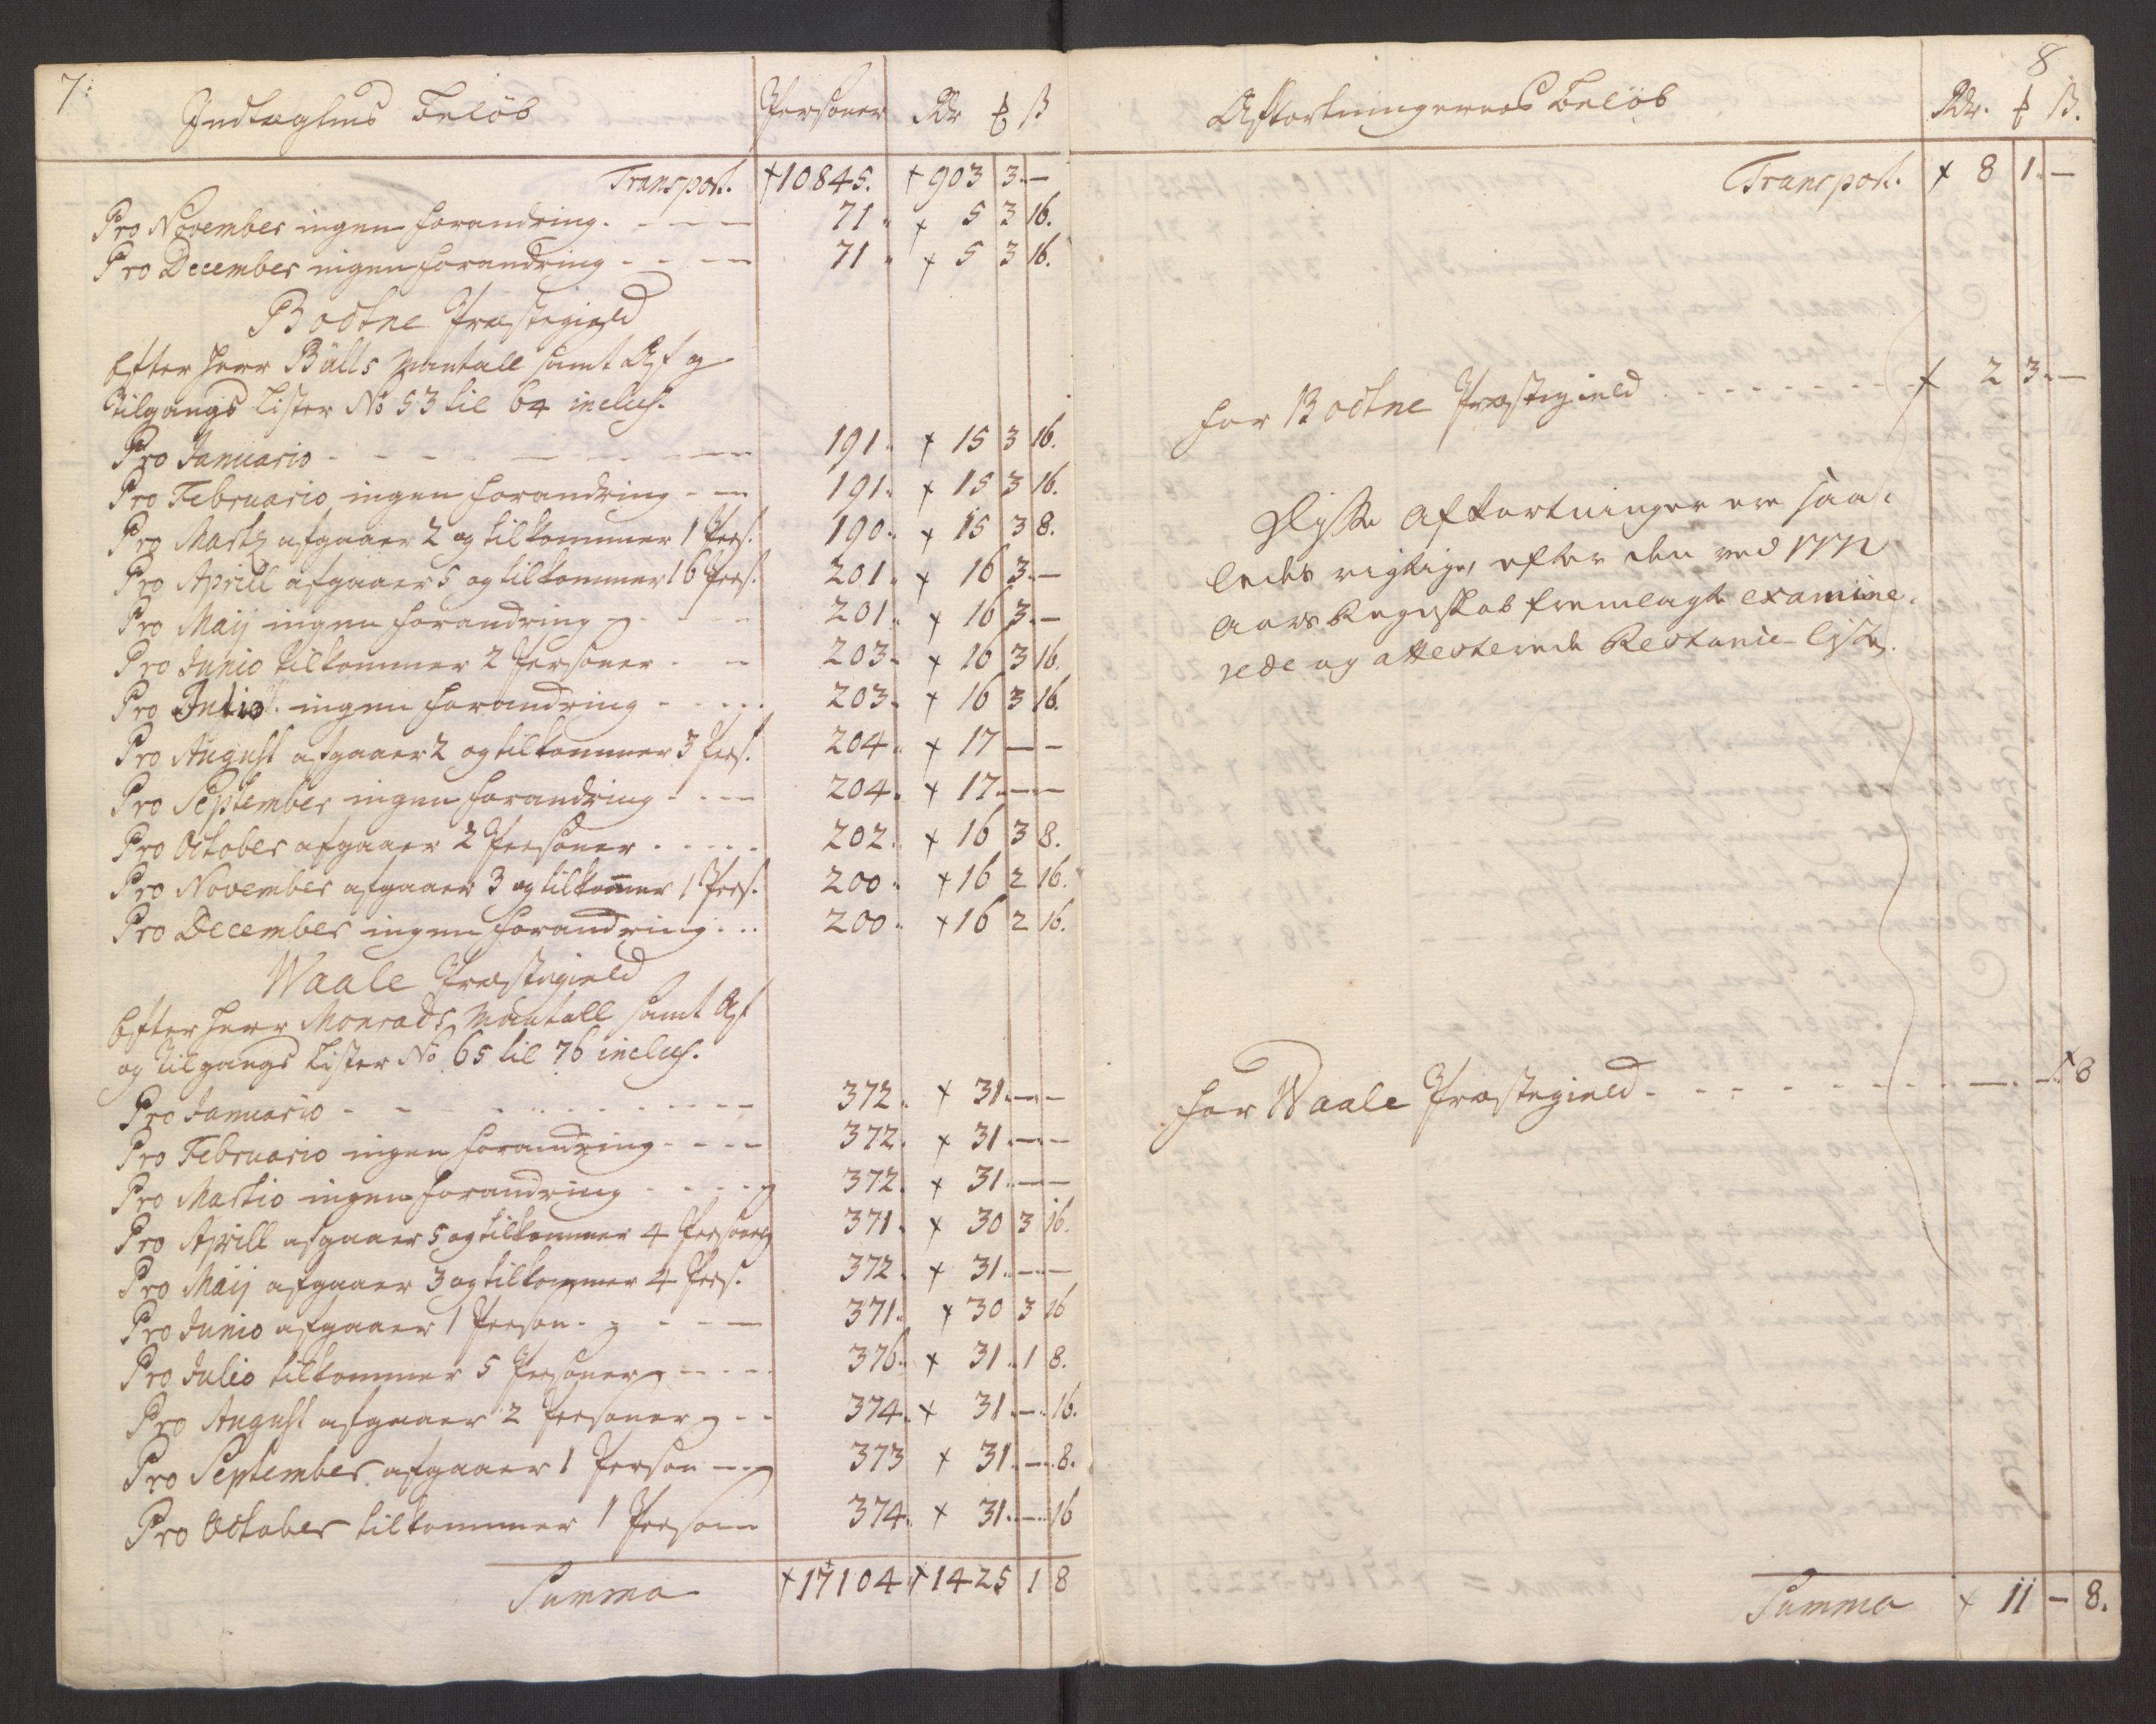 7:
Indtægtens Beløb Personer Rdr ₰ ß
Transport. +10845. +903 3.—
Pro November ingen forandring. 71 + 5 3 16.
Pro December ingen forandring 71 + 5 3 16.
Bodtne Præstegield
Efter Herr Bülls Mantall samt Af og
Tilgangs Lister No 53 til 64 inclus.
Pro Januario 191. + 15 3 16.
Pro Februario ingen forandring 191. + 15 3 16.
Pro Marty afgaaer 2 og tilkommer 1 Pers. 190. + 15 3 8.
Pro Aprill afgaaer 5 og tilkommer 16 Pers. 201. + 16 3.—
Pro Maij ingen forandring 201. + 16 3.—
Pro Junio tilkommer 2 Personer 203. + 16 3 16.
Pro Julio. ingen forandring 203. + 16 3 16.
Pro August afgaaer 2 og tilkommer 3 Pers. 204. + 17 — —
Pro September ingen forandring 204. + 17.— —
Pro October afgaaer 2 Personer 202. + 16 3 8.
Pro November afgaaer 3 og tilkom̅er 1 Pers. 200. + 16 2 16.
Pro December ingen forandring 200. + 16 2 16.
Waale Præstegield
Efter Herr Monrads Mantall samt Af
og Tilgangs Lister No 65 til 76 inclus.
Pro Januario 372. + 31.— —
Pro Februario ingen forandring 372. + 31.— —
Pro Martio ingen forandring 372. + 31.— —
Pro Aprill afgaaer 5 og tilkommer 4 Personer 371. + 30 3 16.
Pro Maij afgaaer 3 og tilkommer 4 Pers. 372. + 31.— —
Pro Junio afgaaer 1 Person 371. + 30 3 16
Pro Julio tilkommer 5 Personer 376. + 31.. 1 8.
Pro August afgaaer 2 Personer 374. + 31.—. 16.
Pro September afgaaer 1 Person 373 + 31.—. 8.
Pro October tilkommer 1 Person 374. + 31.— 16
Summa +17104 +1425 1 8
8
Afkortningernes Beløb Rdr. ₰ ß.
Transport. + 8 1.—
for Bodtne Præstegield + 2 3.—
Disse Afkortninger ere saa-
ledes rigtige, efter den ved
Aars Regnskab fremlagte examine-
rede og attesterede Restanse Liste.
for Waale Præstegield — — + 8
Summa + 11 — 8.